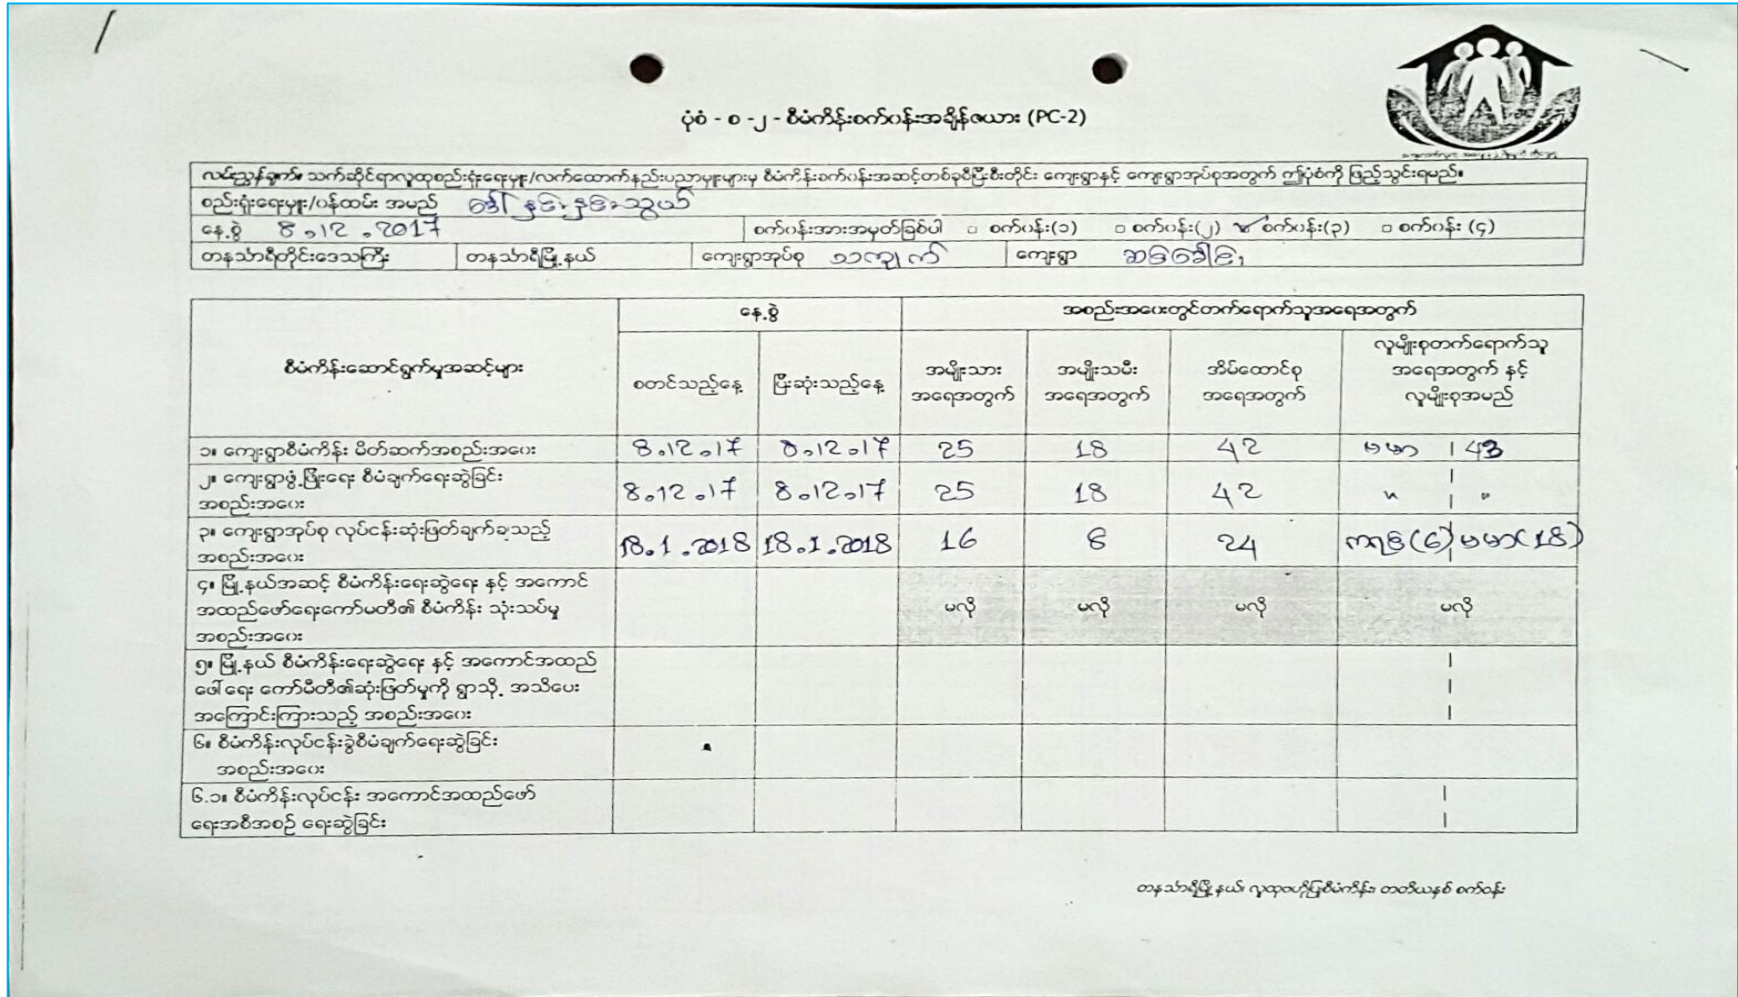 ပုံစံ - စ -၂ - စီမံကိန်းစက်ဝန်းအချိန်ဇယား (PC-2)
လမ်းညွှန်ချက်။ သက်ဆိုင်ရာလူထုစည်းရုံးရေးမှူး/လက်ထောက်နည်းပညာမှူးများမှ စီမံကိန်းစက်ဝန်းအဆင့်တစ်ခုစီပြီးစီးတိုင်း ကျေးရွာနှင့် ကျေးရွာအုပ်စုအတွက် ဤပုံစံကို ဖြည့်သွင်းရမည်။
စည်းရုံးရေးမှူး/ဝန်ထမ်း အမည် ဒေါ်နှင်းနှင်းသွယ်
နေ့စွဲ 8.12.2017 စက်ဝန်းအားအမှတ်ခြစ်ပါ □ စက်ဝန်း(၁) □ စက်ဝန်း(၂) ✓ စက်ဝန်း(၃) □ စက်ဝန်း (၄)
တနင်္သာရီတိုင်းဒေသကြီး တနင်္သာရီမြို့နယ် ကျေးရွာအုပ်စု ကျေးရွာ
နေ့စွဲ အစည်းအဝေးတွင်တက်ရောက်သူအရေအတွက်
စီမံကိန်းဆောင်ရွက်မှုအဆင့်များ စတင်သည့်နေ့ ပြီးဆုံးသည့်နေ့ အမျိုးသား အရေအတွက် အမျိုးသမီး အရေအတွက် အိမ်ထောင်စု အရေအတွက် လူမျိုးစုတက်ရောက်သူ အရေအတွက် နှင့် လူမျိုးစုအမည်
၁။ ကျေးရွာစီမံကိန်း မိတ်ဆက်အစည်းအဝေး 8.12.17 8.12.17 25 18 42 ဗမာ | 43
၂။ ကျေးရွာဖွံ့ဖြိုးရေး စီမံချက်ရေးဆွဲခြင်း
အစည်းအဝေး 8.12.17 8.12.17 25 18 42 " | "
၃။ ကျေးရွာအုပ်စု လုပ်ငန်းဆုံးဖြတ်ချက်ချသည့်
အစည်းအဝေး 18.1.2018 18.1.2018 16 8 24 ကရင်(6) ဗမာ(18)
၄။ မြို့နယ်အဆင့် စီမံကိန်းရေးဆွဲရေး နှင့် အကောင်
အထည်ဖော်ရေးကော်မတီ၏ စီမံကိန်း သုံးသပ်မှု မလို မလို မလို မလို
အစည်းအဝေး
၅။ မြို့နယ် စီမံကိန်းရေးဆွဲရေး နှင့် အကောင်အထည်
ဖေါ်ရေး ကော်မီတီ၏ဆုံးဖြတ်မှုကို ရွာသို့ အသိပေး
အကြောင်းကြားသည့် အစည်းအဝေး
၆။ စီမံကိန်းလုပ်ငန်းခွဲစီမံချက်ရေးဆွဲခြင်း
အစည်းအဝေး
၆.၁။ စီမံကိန်းလုပ်ငန်း အကောင်အထည်ဖော်
ရေးအစီအစဉ် ရေးဆွဲခြင်း
တနင်္သာရီမြို့နယ်၊ လူထုဗဟိုပြုစီမံကိန်း၊ တတိယနှစ် စက်ဝန်း